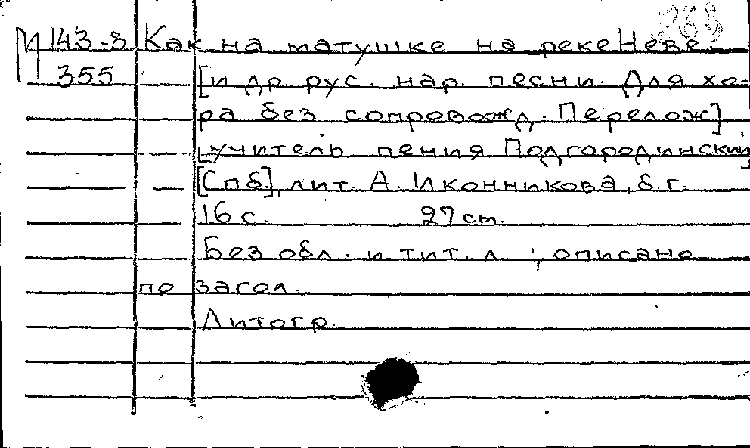 М 143-8 Как на матушке на реке Неве
355 [и др. рус. нар. песни. Для хо-
ра без сопровожд. Перелож]
учитель пения Подгородинский
[Спб], лит. А. Иконникова, б. г.
16 с. 27 см.
Без обл. и тит. л.; описано
по загол.
Литогр.